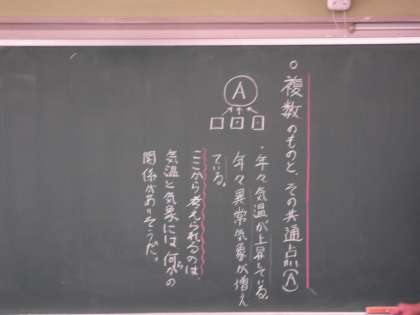 ○複数のものと、その共通点(A)
A
・年々気温が上昇している。
年々異常気象が増え
ている。
ここから考えられるのは、
気温と気象には何らかの
関係がありそうだ。